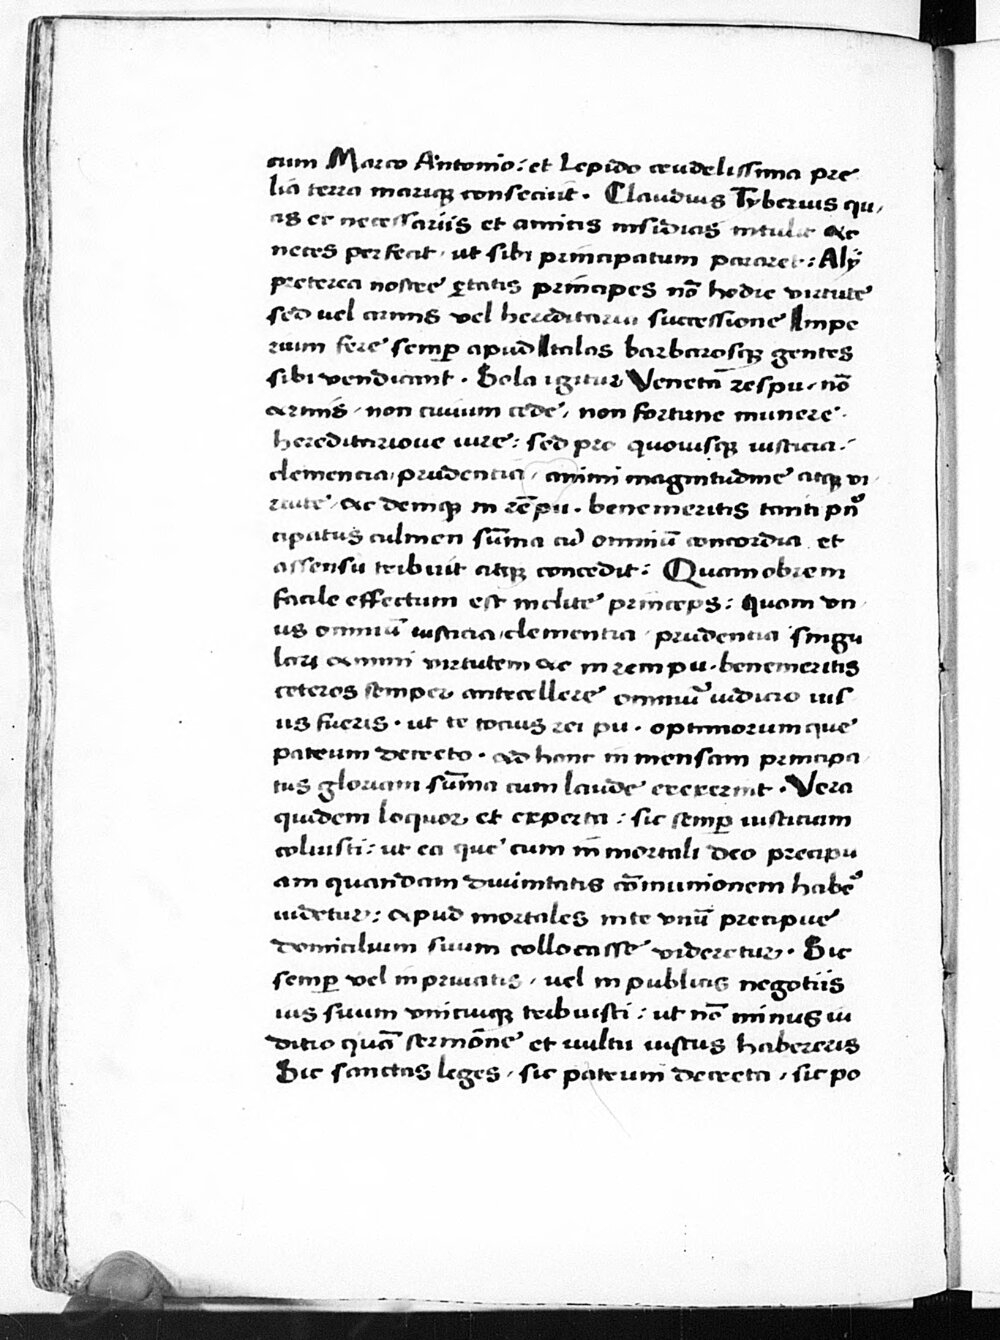 cum Marco Antonio: et Lepido crudelissima pre
lia terra mariq̃ consecuit. Claudius Tyberius qu,
as ec necessariis et amicis insidias intulit Ac
neces perfecit, ut sibi principatum pararet: Alÿ
preterea nostre ętatis principes nõ hodie virtute
sed vel armis vel hereditaria successione Impe
rium fere semp̃ apud Italas barbarosq̃ gentes
sibi vendicant. Sola igitur Veneta respu. nõ
Armis, non civium cede, non fortune munere
hereditariove iure: sed pro quovisq̃ iusticia:
clementia, prudentia, animi magnitudine atq̃ vi
rtute, Ac deniq̃ in rẽ pu. benemeritis tanti pñ
cipatus culmen sũma cũ omniũ concordia et
assensu tribuit atq̃ concedit: Quamobrem
facile effectum est inclite princeps: quam un
us omniũ iusticia, clementia, prudentia singu
lari Animi virtutem Ac in rem pu. benemeritis
ceteros semper antecellere omniũ iudicio vis
us fueris. ut te tocius rei pu. optimorumque
patrum decreto. Ad hanc inmensam principa
tus gloriam sũma cum laude erexerint. Vera
quidem loquor et experta: sic semp̃ iusticiam
coluisti: ut ea que cum inmortali deo precipu
am quandam divinitatis cõmunionem habẽ
videtur: Apud mortales in te unũ precipue
domicilium suum collocasse videretur. Sic
semp̃ vel in privatis, vel in publicis negotiis
ius suum unicuiq̃ tribuisti: ut nõ minus iu
ditio quã sermõne et vultu iustus habereris
Sic sanctas leges, sic patrum decreta, sic po